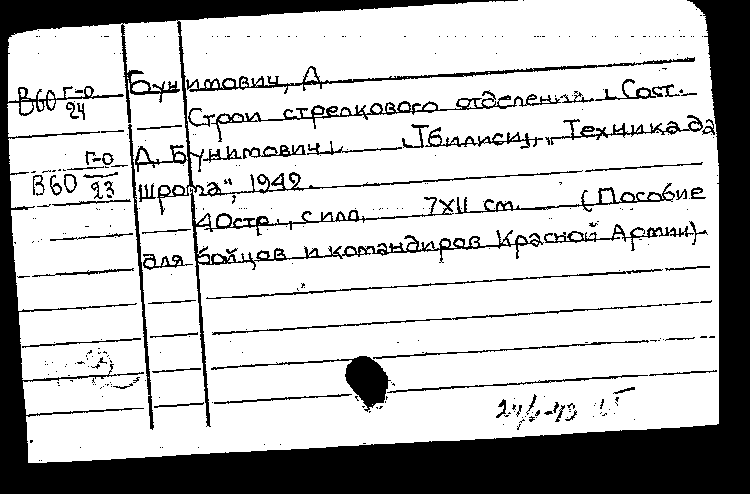 В60 Г-0/24 Бунимович, Д.
Строи стрелкового отделения. [Сост.
В60 Г-0/23 Д. Бунимович]. [Тбилиси], "Техника да
шрома", 1942.
40стр., с илл. 7х11 см. (Пособие
для бойцов и командиров Красной Армии).